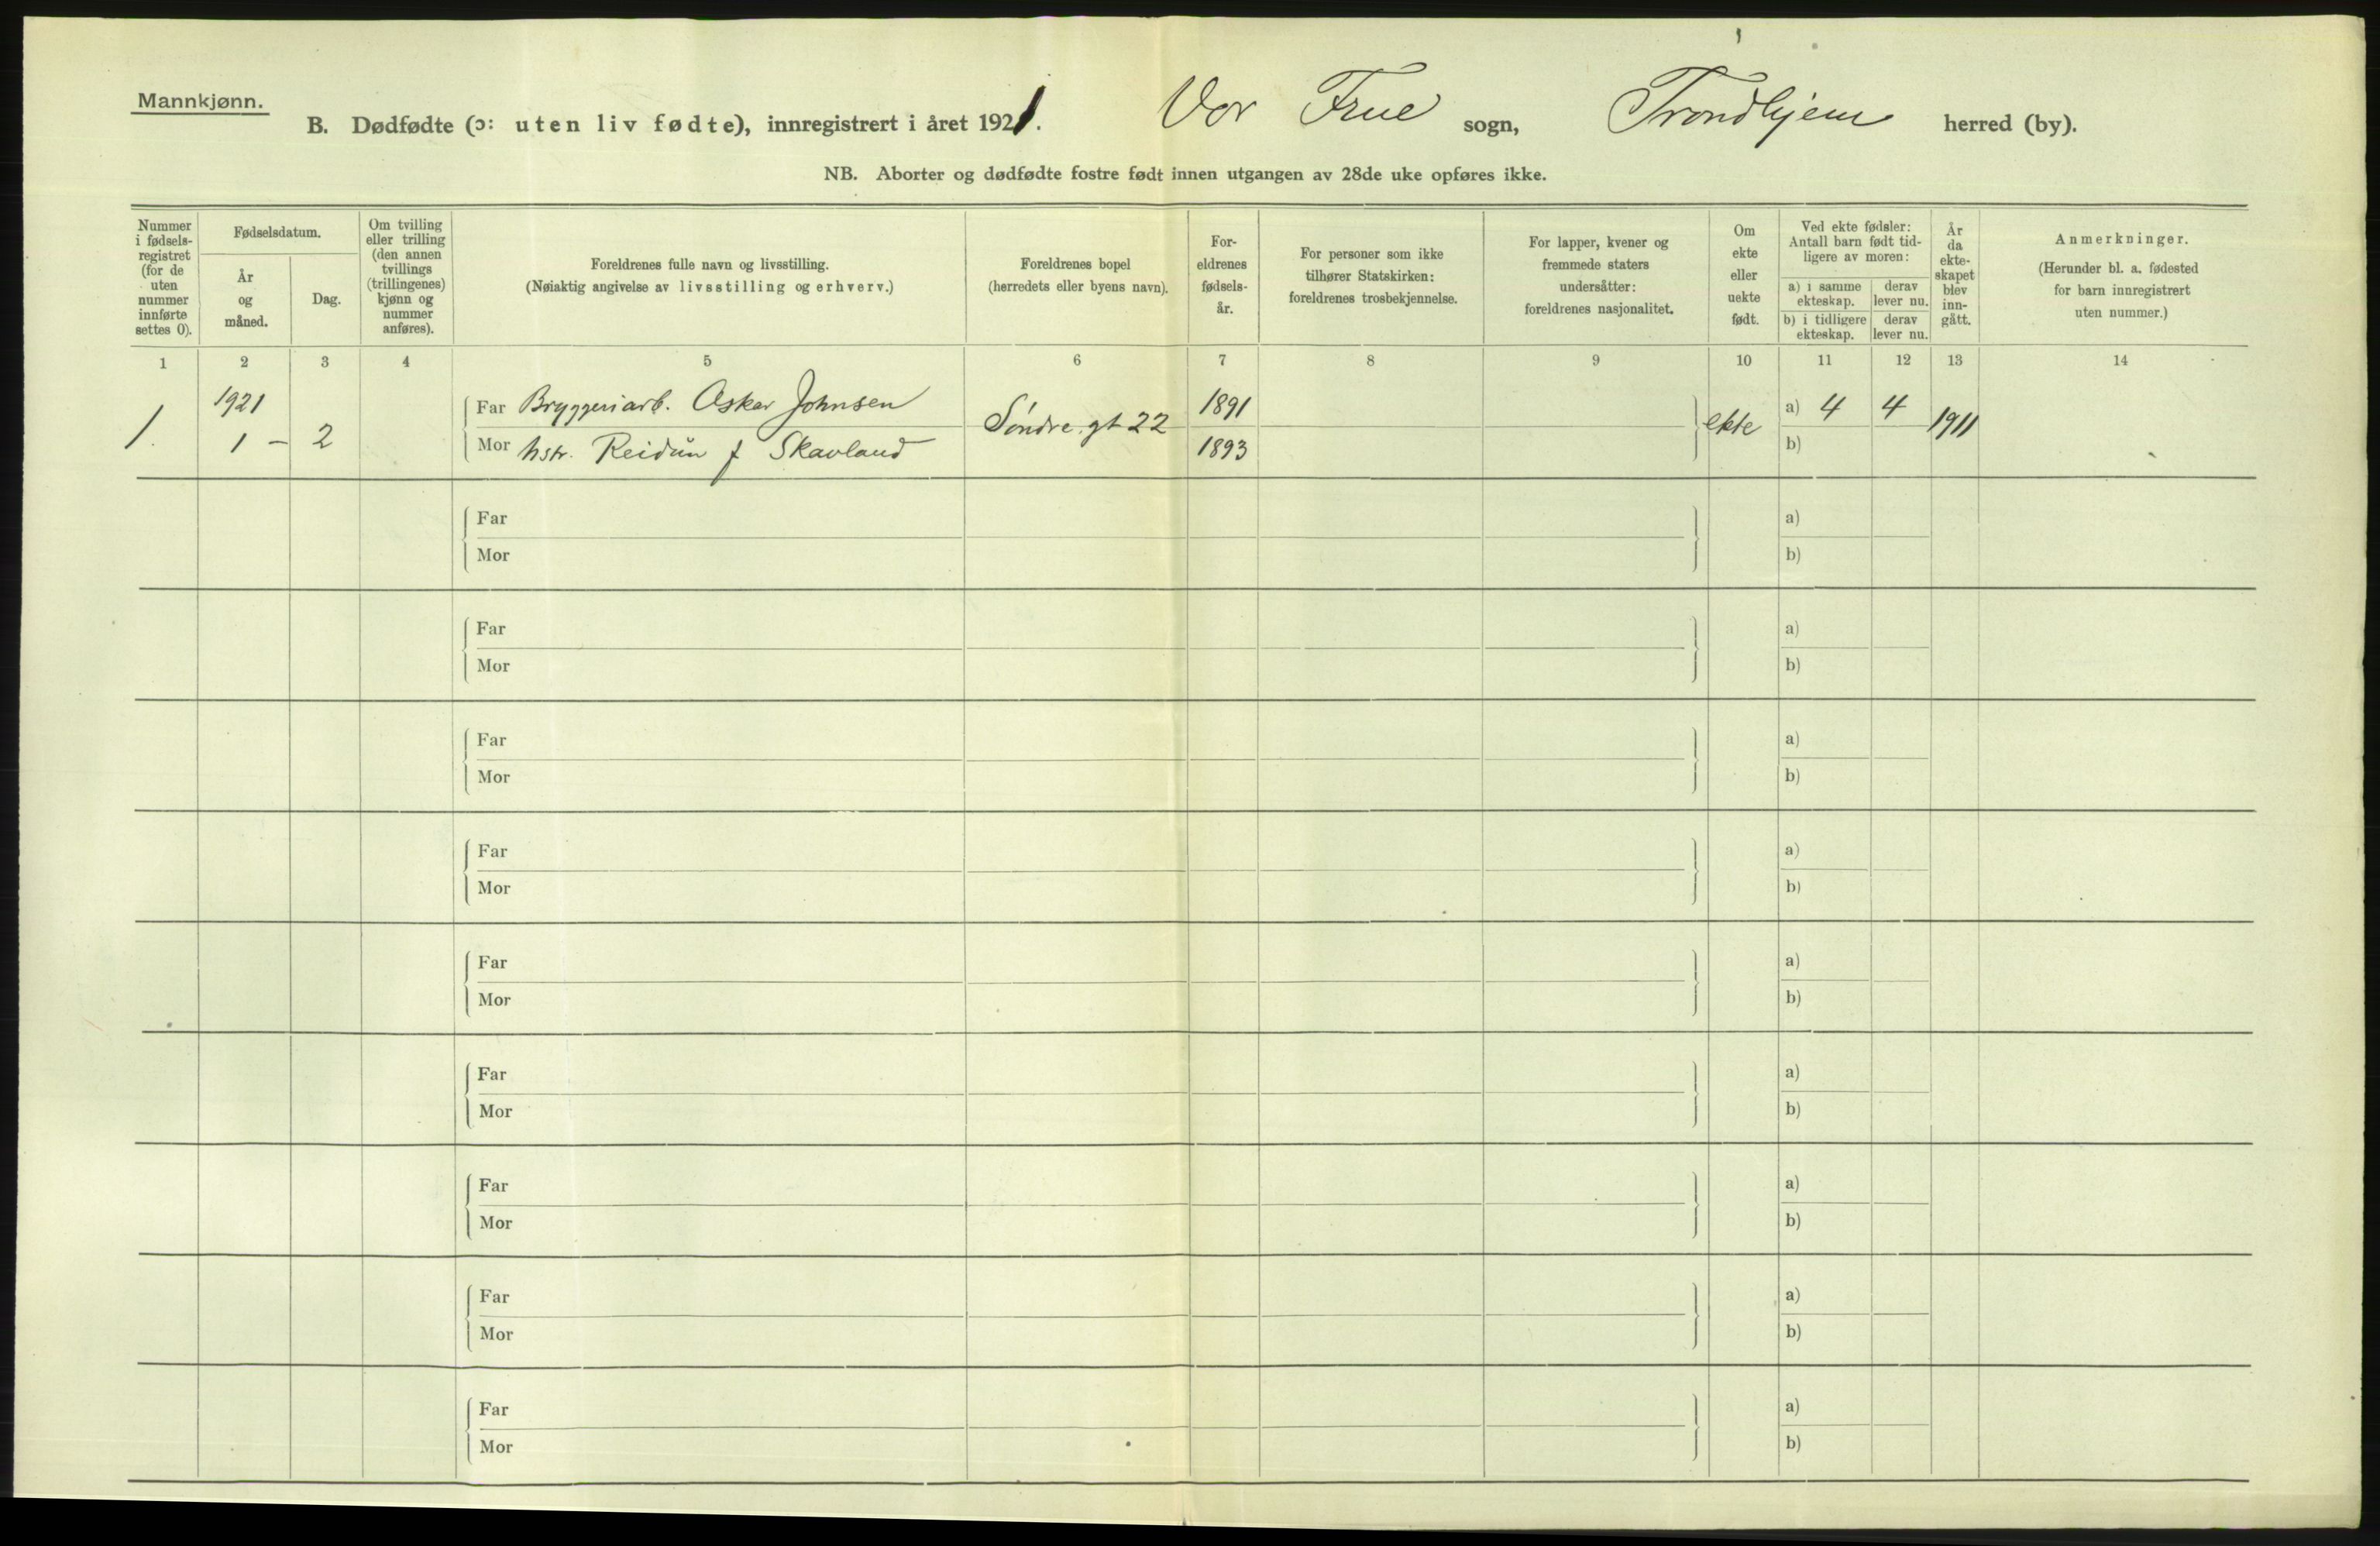 Mannkjønn.
B. Dødfødte (ɔ: uten liv fødte), innregistrert i året 1921. Vor Frue sogn, Trondhjem herred (by).
NB. Aborter og dødfødte fostre født innen utgangen av 28de uke opføres ikke.
Nummer
i fødsels-
registret
(for de
uten
nummer
innførte
settes 0).
Fødselsdatum.
År
og
måned.
Dag.
Om tvilling
eller trilling
(den annen
tvillings
(trillingenes)
kjønn og
nummer
anføres).
Foreldrenes fulle navn og livsstilling.
(Nøiaktig angivelse av livsstilling og erhverv.)
Foreldrenes bopel
(herredets eller byens navn).
For-
eldrenes
fødsels-
år.
For personer som ikke
tilhører Statskirken:
foreldrenes trosbekjennelse.
For lapper, kvener og
fremmede staters
undersåtter:
foreldrenes nasjonalitet.
Om
ekte
eller
uekte
født.
Ved ekte fødsler:
Antall barn født tid-
ligere av moren:
a) i samme
ekteskap.
derav
lever nu.
b) i tidligere
ekteskap.
derav
lever nu.
År
da
ekte-
skapet
blev
inn-
gått.
Anmerkninger.
(Herunder bl. a. fødested
for barn innregistrert
uten nummer.)
1 2 3 4 5 6 7 8 9 10 11 12 13 14
1921
1. 1 - 2
Far Bryggeriarb. Oskar Johnsen
Mor hstr. Reidun f Skavland
Søndre.gt 22
1891
1893
ekte
a) 4 4
b)
1911
Far a)
Mor b)
Far a)
Mor b)
Far a)
Mor b)
Far a)
Mor b)
Far a)
Mor b)
Far a)
Mor b)
Far a)
Mor b)
Far a)
Mor b)
Far a)
Mor b)